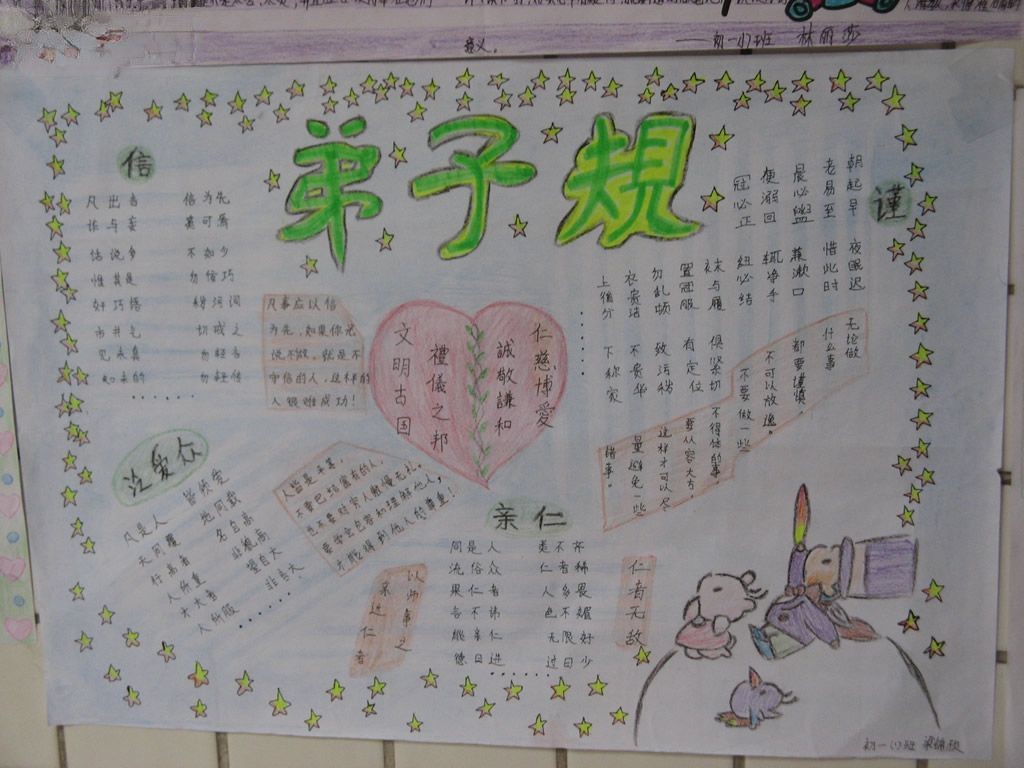 意义。
——初一(7)班 林丽莎
弟子规
信
凡出言 信为先
诈与妄 奚可焉
话说多 不如少
惟其是 勿佞巧
奸巧语 秽污词
市井气 切戒之
见未真 勿轻言
知未的 勿轻传
······
凡事应以信
为先，如果你光
说不做，就是不
守信的人，这样的
人很难成功！
文明古国
禮儀之邦
誠敬謙和
仁慈博愛
谨
朝起早 夜眠迟
老易至 惜此时
晨必盥 兼漱口
便溺回 辄净手
冠必正 纽必结
袜与履 俱紧切
置冠服 有定位
勿乱顿 致污秽
衣贵洁 不贵华
上循分 下称家
······
无论做
什么事
都要谨慎，
不可以放逸。
不要做一些
不得体的事，
要从容大方，
这样才可以尽
量避免一些
错事。
泛爱众
凡是人 皆须爱
天同覆 地同载
行高者 名自高
人所重 非貌高
才大者 望自大
人所服 非言大
······
人皆是平等
要学会包容和理解他人，
才能得到他人的尊重！
亲仁
同是人 类不齐
流俗众 仁者稀
果仁者 人多畏
言不讳 色不媚
能亲仁 无限好
德日进 过日少
······
以师事之
亲近仁者
仁者无敌
初一(7)班